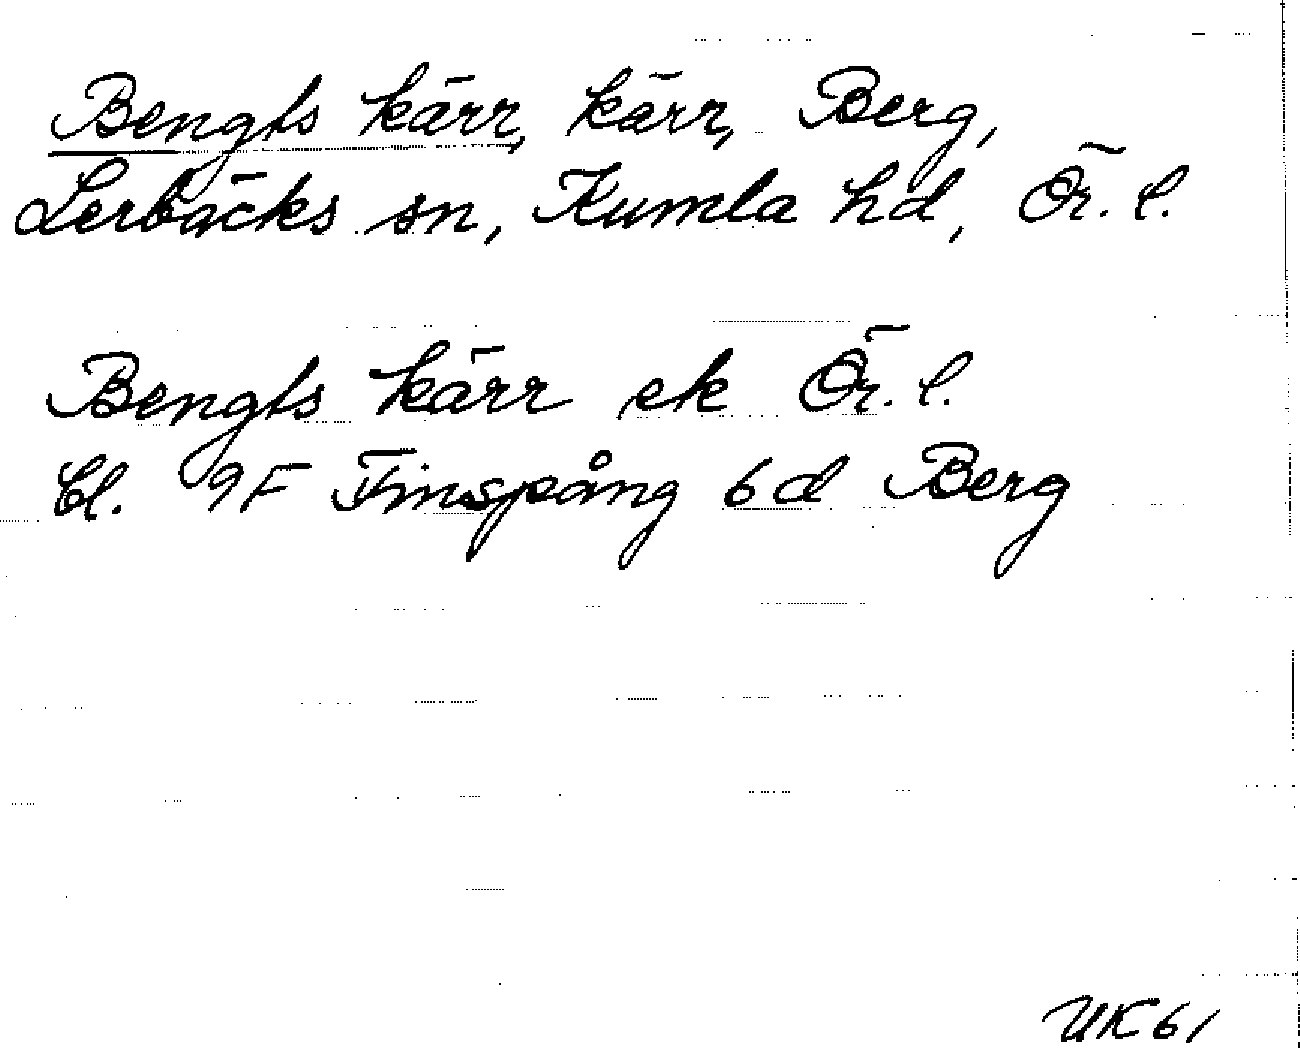 Bengts kärr, kärr, Berg,
Lerbäcks sn, Kumla hd, Ör. l.
Bengts kärr ek Ör. l.
Bl. 9F Finspång 6d Berg
UK61